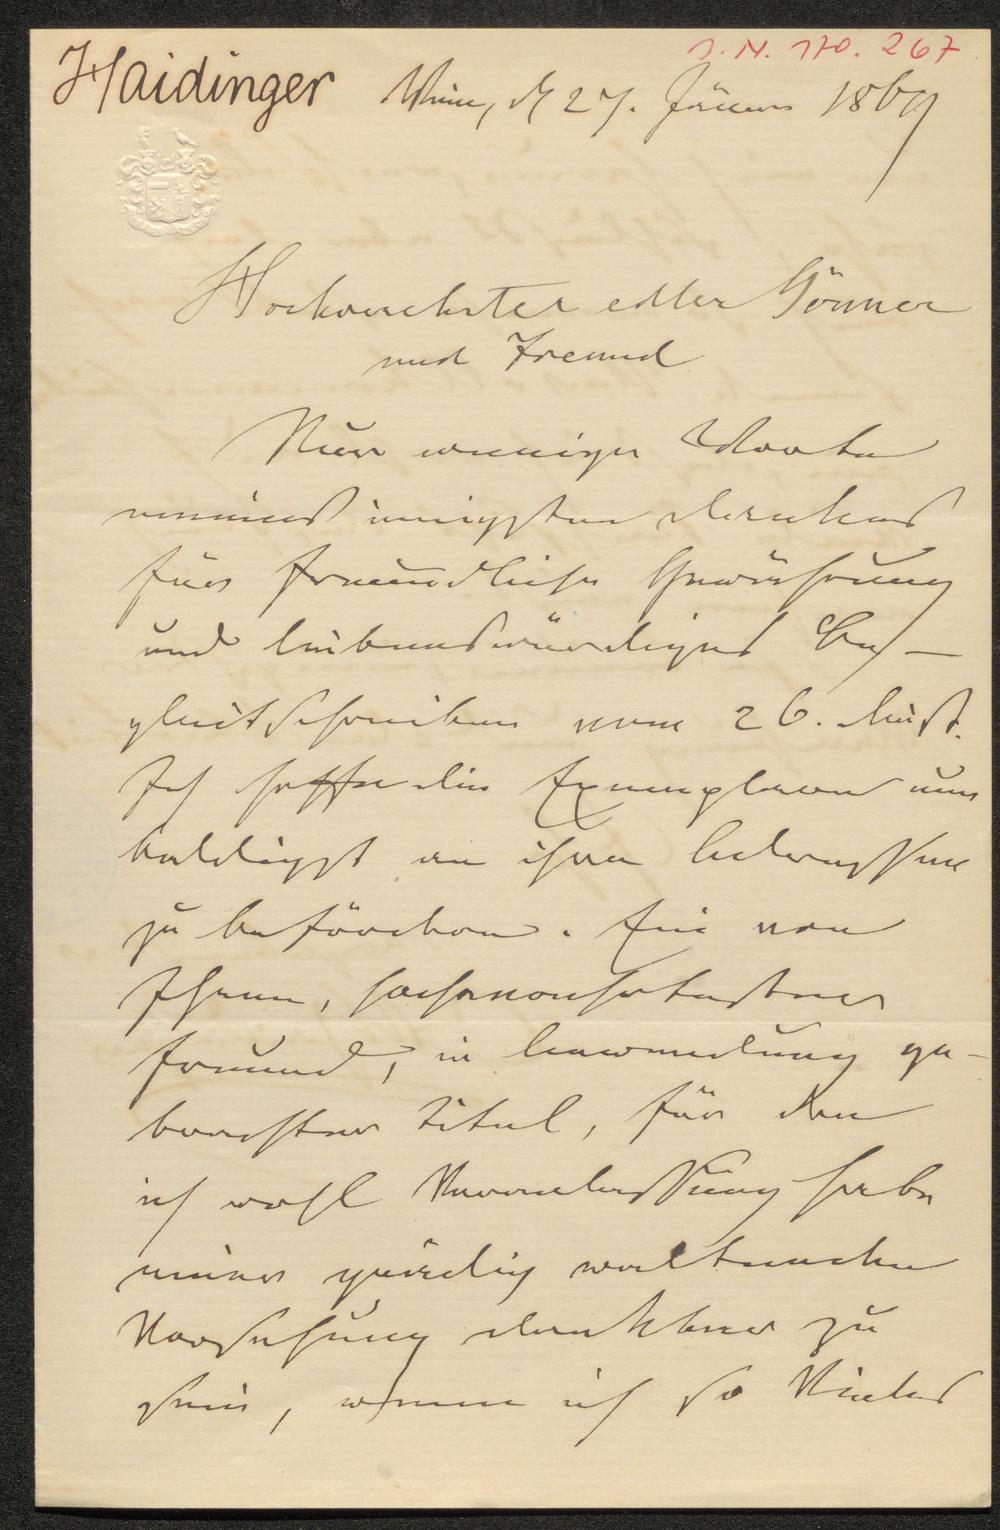 I. N. 170.267
Haidinger
Wien, d 27. Jänner 1869
Hochverehrter edler Gönner
und Freund
Nur wenige Worte
meines innigsten Dankes
für freundliche Gewährung
und liebenswürdiges Be-
gleitschreiben vom 26. dieß.
Ich hoffe die Exemplare nun
baldigst an ihre Adressen
zu befördern. Ein von
Ihnen, hochverehrtester
Freund, in Anwendung ge-
brachter Titel, für den
ich wohl Veranlassung habe
einer gütig waltenden
Vorsehung dankbar zu
sein, wenn ich so Vieles